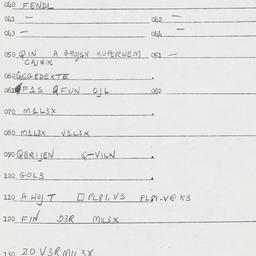 040 FENDL
041 — 042 —
043 — 044 —
050 QIN A GROJSN KUPERNEM 051 —
CAJNIK
060 GSGEDEXTE
061 F1S QFUN OJL 062
070 M1L3X
080 M1L3X V1LSX
090 QBRIJEN Q-VILN
100 GOL3
110 A HOJT □ PL81.V3 PL81.V@ K3
120 FIN D3R MIL3X
130 20 V3RMIL3X